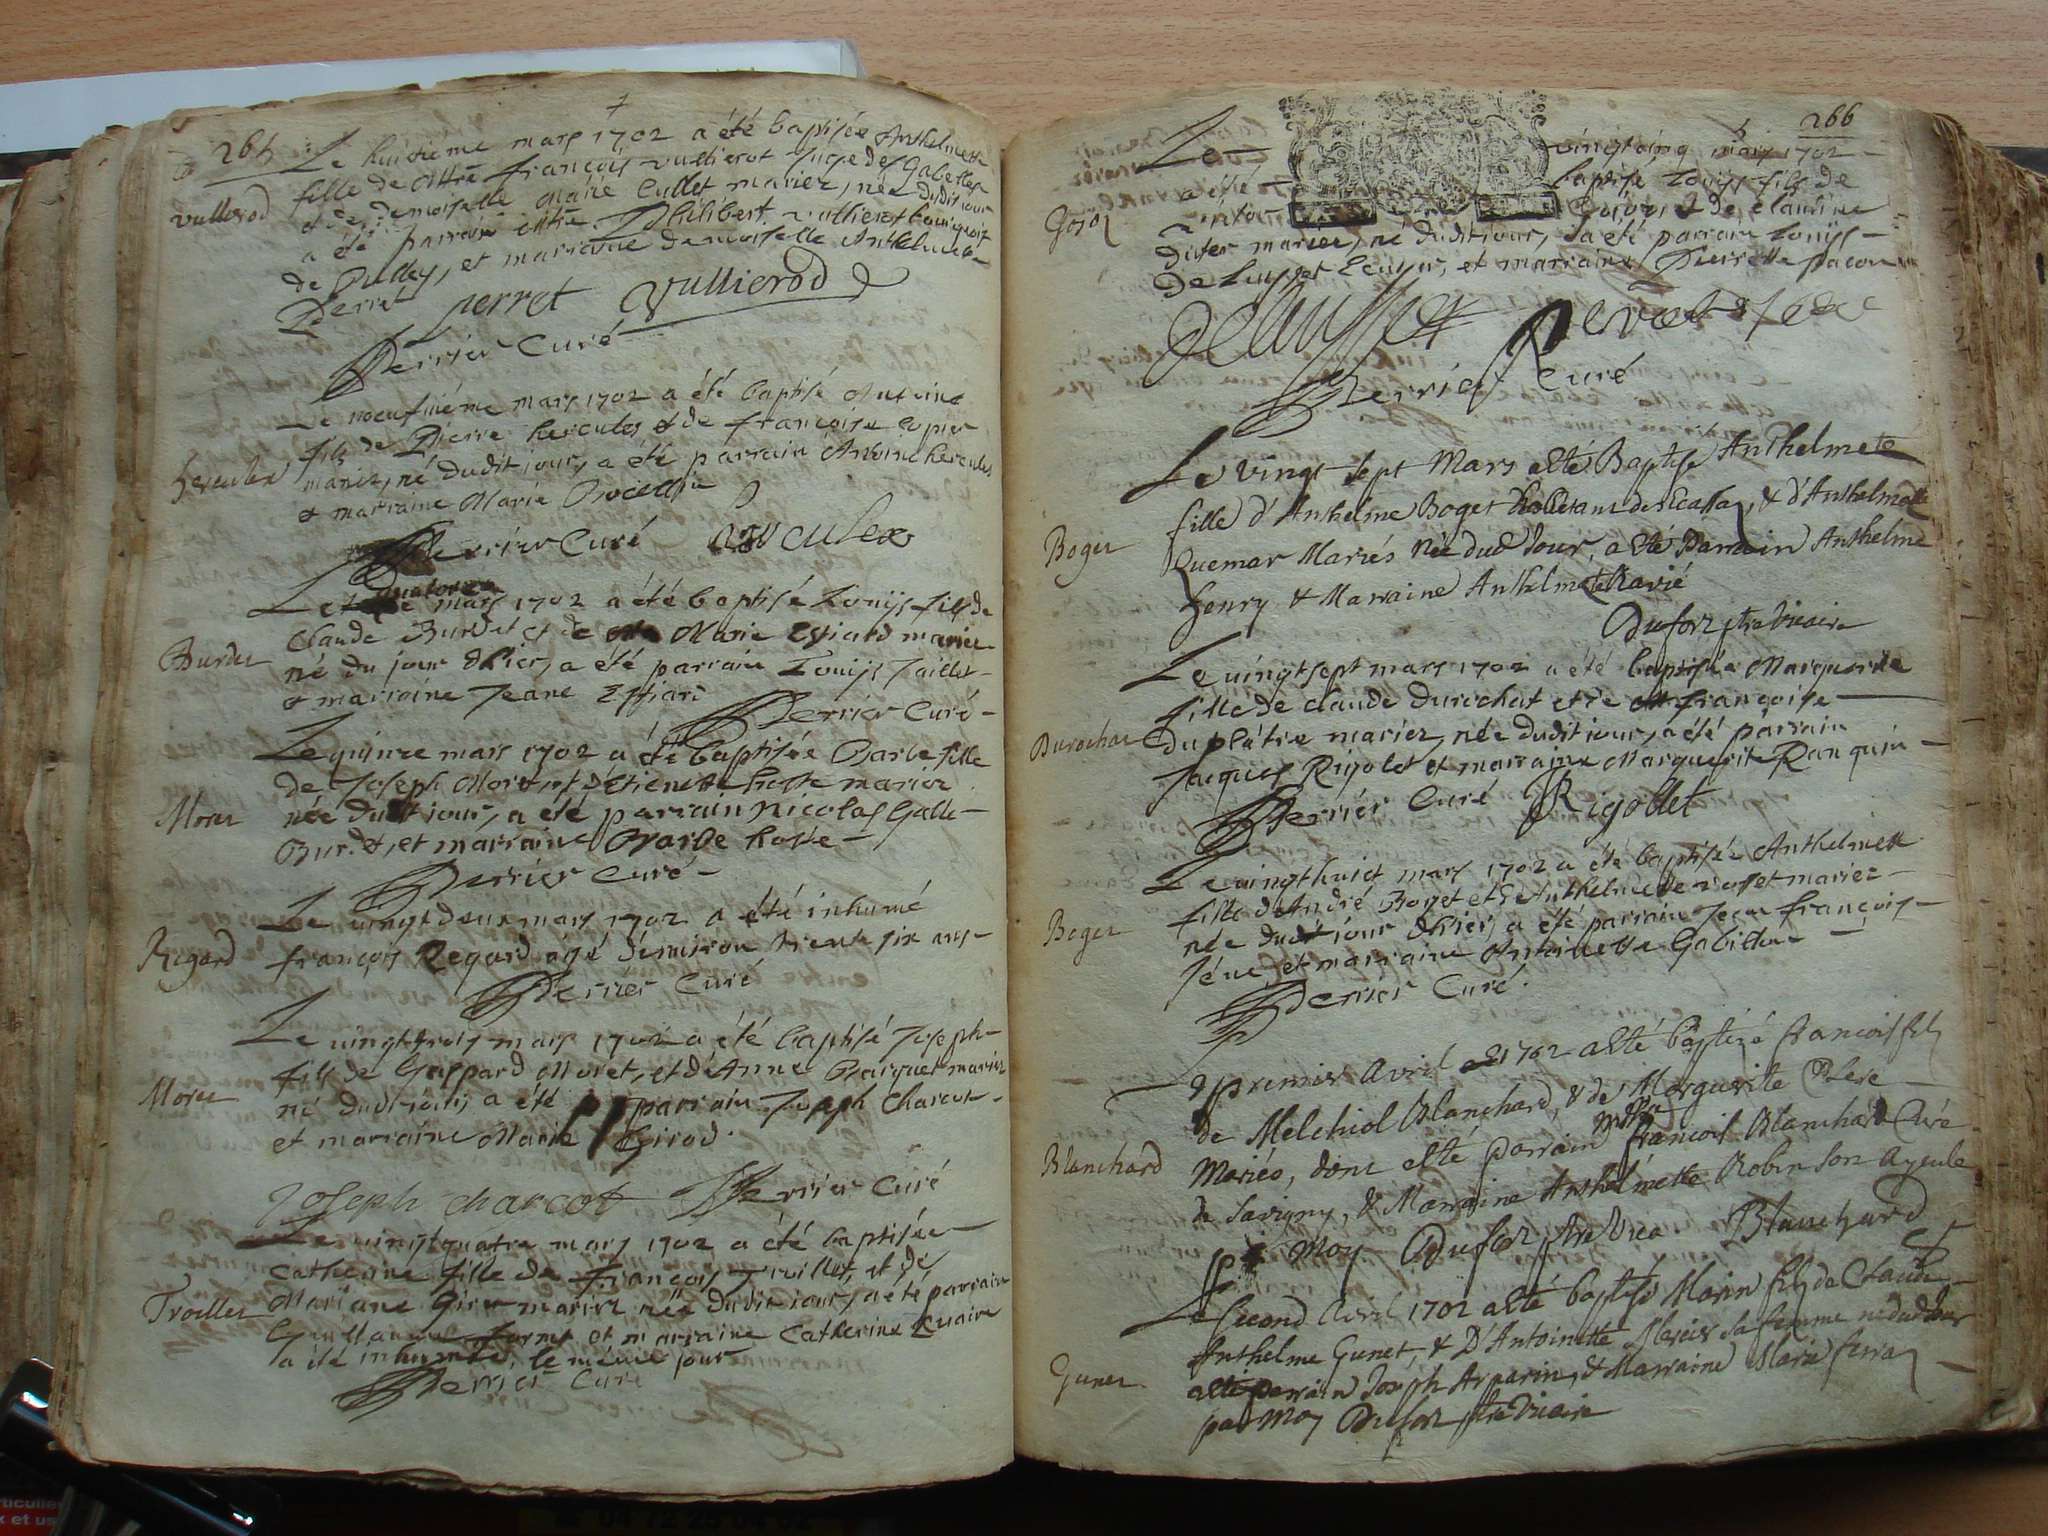 265
Le huitième mars 1702 a été baptisée Anthelmette
vullierod
fille de Mttre françois vullierot Juge des Gabelles
et de demoiselle Marie Cullet mariez, née dudit jour
a été parrain Mttre Philibert vullierot bourgeois
de Bellej, et marraine demoiselle Anthelmette
Perret perret Vullierod
Perrier Curé
Le noeufuième mars 1702 a été baptisé Antoine
fils de Pierre hercules et de françoise
hercules
mariez, né dudit jour, a été parrain Antoine hercules
et marraine Marie
Perrier Curé
Le quatorze mars 1702 a été baptisé Louijs fils de
Claude Burdet et de Marie Estiard mariez
Burdet
né du jour d'hier, a été parrain Louijs Jaillet
et marraine Jeane Estiard
Perrier Curé
Le quinze mars 1702 a été baptisée Barbe fille
de Joseph Moret et d'Etienette hoste mariez
Moret
née dudit jour, a été parrain Nicolas Galle
Burdet, et marraine Barbe hoste
Perrier Curé
Le vingt deux mars 1702 a été inhumé
Regard
françois Regard agé d'environ trente six ans
Perrier Curé
Le vingt trois mars 1702 a été baptisé Joseph
fils de Gaspard Moret, et d'Anne Parquet mariez
Moret
né dudit jour, a été parrain Joseph Charcot
et marraine Marie Girod.
Joseph charcot Perrier Curé
Le vingt quatre mars 1702 a été baptisée
Catherine fille de françois Troillet, et de
Troillet
Mariane mariez née dudit jour, a été parrain
Guillaume et marraine Catherine
a été inhumée, le même jour
Perrier Curé
266
Le vingtcinq mars 1702
a été baptisé Louijs fils de
Gojoz
Gojoz, & de Claudine
mariez, né dudit jour, a été parrain Louijs
De Ecuyer, et marraine Pierrette pacou
Perrier Curé
Le vingt-sept Mars a été Baptisé Anthelmete
fille d'Anthelme Boget & d'Anthelmette
Boget
Quemar Mariés Née dud Jour, a été Parrain Anthelme
henry & Marraine Anthelmete
Dufour ptre Vicaire
Le vingtsept mars 1702 a été baptisée Marguerite
fille de Claude Durochat et de françoise
Durochat
duplâtre mariez, née dudit jour, a été parrain
Jacques Rigolet et marraine Marguerite Ranquin
Perrier Curé Rigollet
Le vingthuict mars 1702 a été baptisée Anthelmette
fille d'André Boget et d'Anthelmette mariez
Boget
née du jour d'hier, a été parrain Jean françois
Jéne, et marraine Antoinette Gabillon
Perrier Curé
Le premier avril 1702 a été baptizé francois fils
de Melchiol Blanchard, & de Marguerite
Blanchard
Mariés, dont a été Parrain francois Blanchard Curé
de Savigny, & Marraine Anthelmette Robin Son Ayeule
moy Dufour ptre Vica. Blanchard
Le second avril 1702 a été baptisé Marin fils de Claude
Anthelme Gunet, & D'Antoinette Mercier sa femme né dud Jour
Gunet
a été parrain Joseph Arparin, & Marraine Marie ferra
par Moy Dufour ptre Vicaire